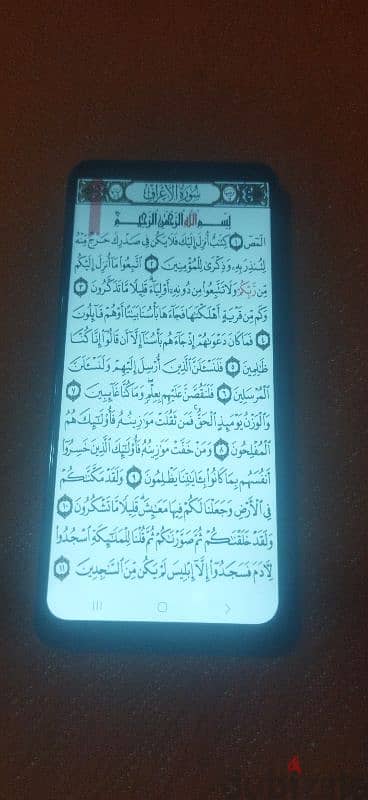 سورة الأعراف
بسم الله الرحمن الرحيم
الٓمٓصٓ ١ كِتَٰبٌ أُنزِلَ إِلَيْكَ فَلَا يَكُن فِى صَدْرِكَ حَرَجٌ مِّنْهُ
لِتُنذِرَ بِهِۦ وَذِكْرَىٰ لِلْمُؤْمِنِينَ ٢ ٱتَّبِعُوا۟ مَآ أُنزِلَ إِلَيْكُم
مِّن رَّبِّكُمْ وَلَا تَتَّبِعُوا۟ مِن دُونِهِۦٓ أَوْلِيَآءَ قَلِيلًا مَّا تَذَكَّرُونَ ٣
وَكَم مِّن قَرْيَةٍ أَهْلَكْنَٰهَا فَجَآءَهَا بَأْسُنَا بَيَٰتًا أَوْ هُمْ قَآئِلُونَ
٤ فَمَا كَانَ دَعْوَىٰهُمْ إِذْ جَآءَهُم بَأْسُنَآ إِلَّآ أَن قَالُوٓا۟ إِنَّا كُنَّا
ظَٰلِمِينَ ٥ فَلَنَسْـَٔلَنَّ ٱلَّذِينَ أُرْسِلَ إِلَيْهِمْ وَلَنَسْـَٔلَنَّ
ٱلْمُرْسَلِينَ ٦ فَلَنَقُصَّنَّ عَلَيْهِم بِعِلْمٍ وَمَا كُنَّا غَآئِبِينَ ٧
وَٱلْوَزْنُ يَوْمَئِذٍ ٱلْحَقُّ فَمَن ثَقُلَتْ مَوَٰزِينُهُۥ فَأُو۟لَٰٓئِكَ هُمُ
ٱلْمُفْلِحُونَ ٨ وَمَنْ خَفَّتْ مَوَٰزِينُهُۥ فَأُو۟لَٰٓئِكَ ٱلَّذِينَ خَسِرُوٓا۟
أَنفُسَهُم بِمَا كَانُوا۟ بِـَٔايَٰتِنَا يَظْلِمُونَ ٩ وَلَقَدْ مَكَّنَّٰكُمْ
فِى ٱلْأَرْضِ وَجَعَلْنَا لَكُمْ فِيهَا مَعَٰيِشَ قَلِيلًا مَّا تَشْكُرُونَ ١٠
وَلَقَدْ خَلَقْنَٰكُمْ ثُمَّ صَوَّرْنَٰكُمْ ثُمَّ قُلْنَا لِلْمَلَٰٓئِكَةِ ٱسْجُدُوا۟
لِـَٔادَمَ فَسَجَدُوٓا۟ إِلَّآ إِبْلِيسَ لَمْ يَكُن مِّنَ ٱلسَّٰجِدِينَ ١١